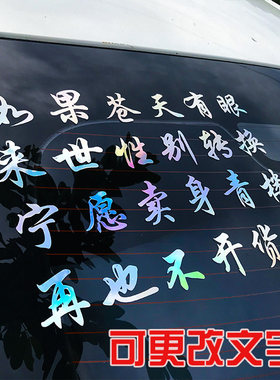 如果苍天有眼
来世性别转换
宁愿卖身青楼
再也不开货
可更改文字